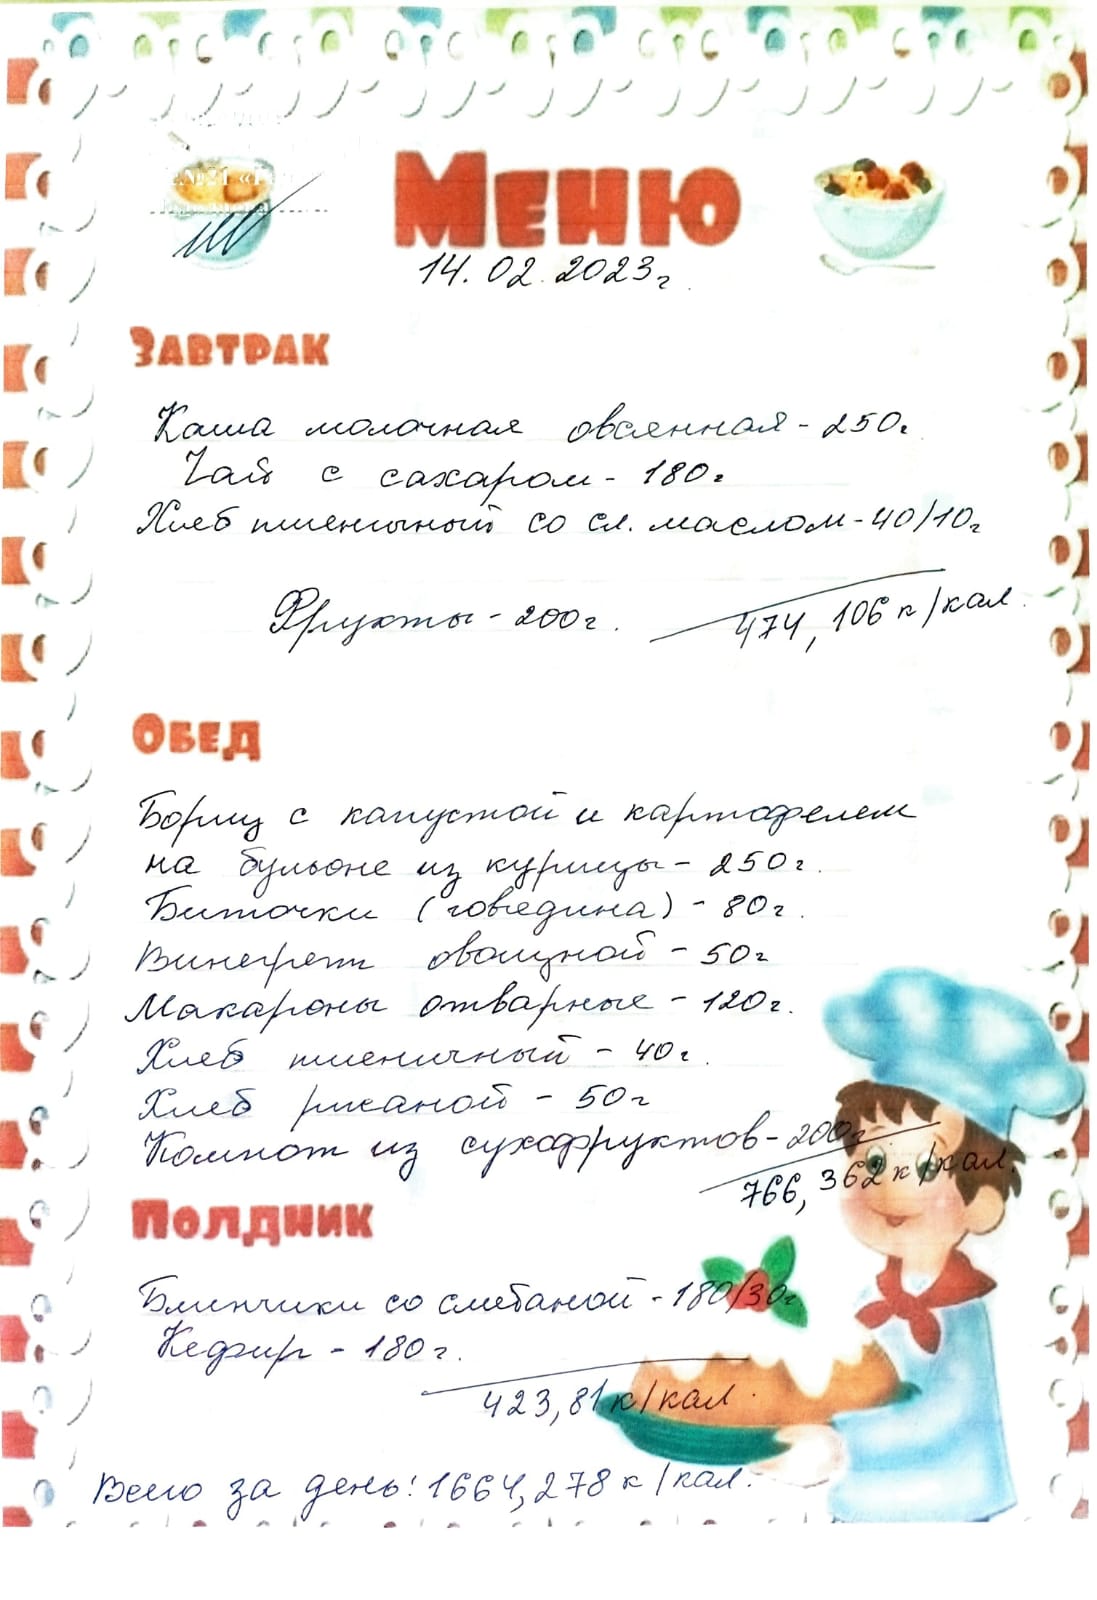 №21
Меню
14.02.2023г.
Завтрак
Каша молочная овсянная - 250г.
Чай с сахаром - 180г
Хлеб пшеничный со сл. маслом - 40/10г
Фрукты - 200г.
474,106 к/кал.
Обед
Борщ с капустой и картофелем
на бульоне из курицы - 250г.
Биточки (говядина) - 80г.
Винегрет овощной - 50г
Макароны отварные - 120г.
Хлеб пшеничный - 40г.
Хлеб ржаной - 50г
Компот из сухофруктов - 200г
766,362 к/кал.
Полдник
Блинчики со сметаной - 180/30г.
Кефир - 180г.
423,81 к/кал.
Всего за день: 1664,278 к/кал.